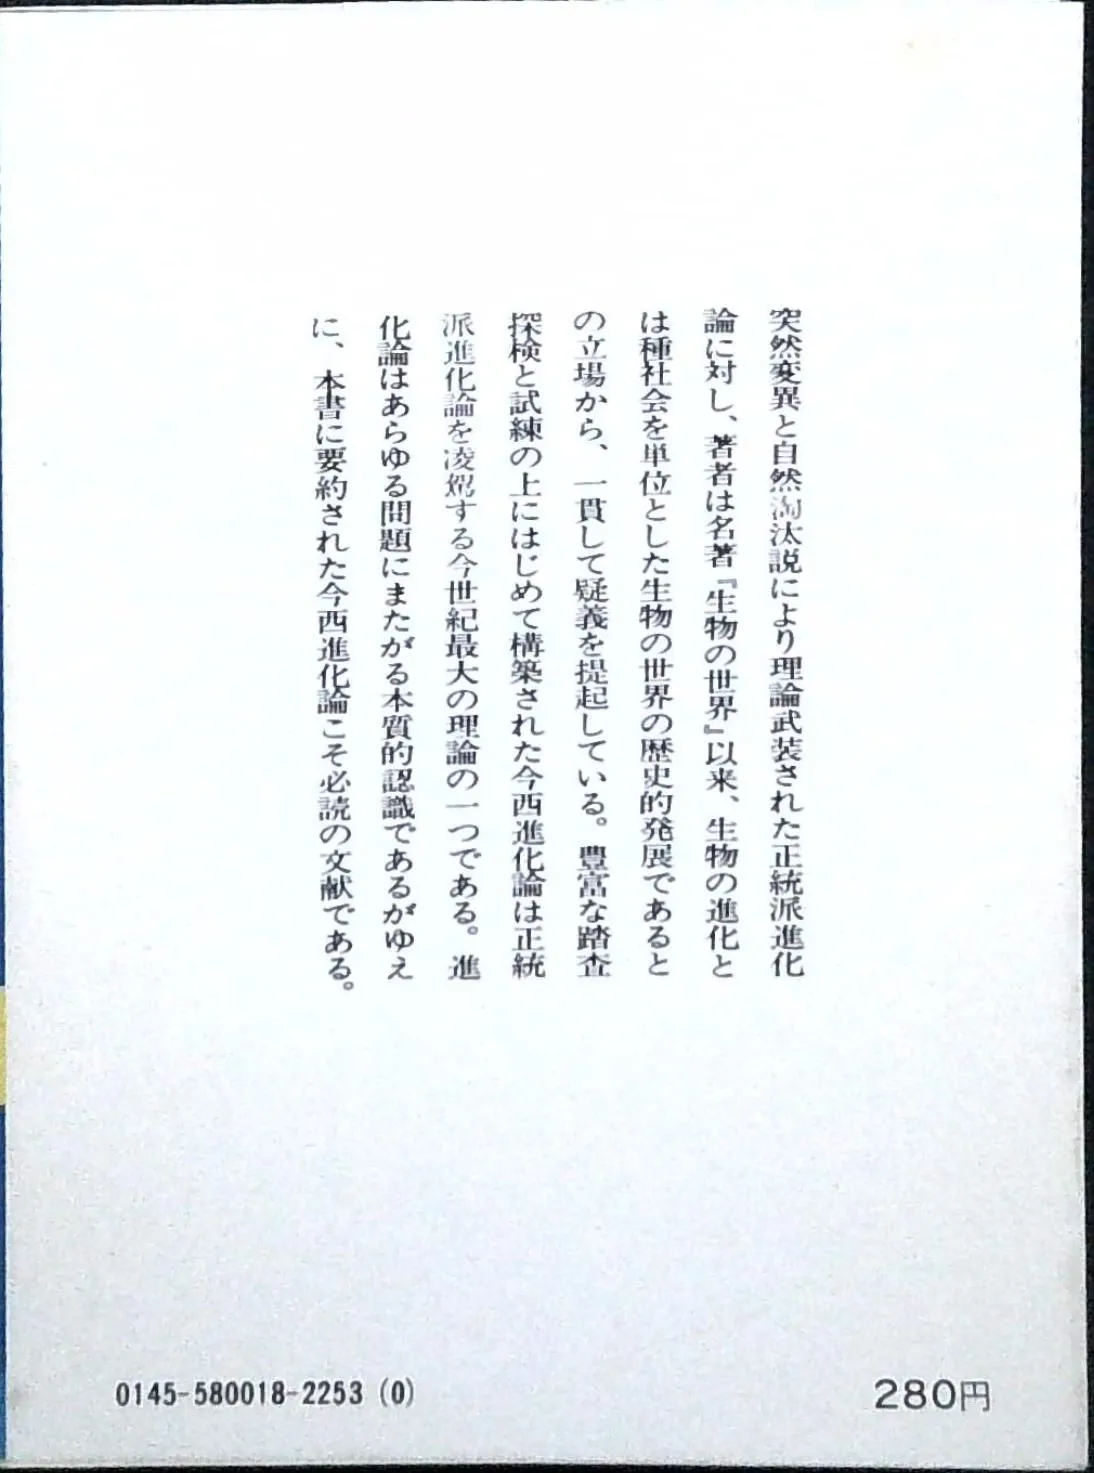 突然変異と自然淘汰説により理論武装された正統派進化
論に対し、著者は名著『生物の世界』以来、生物の進化と
は種社会を単位とした生物の世界の歴史的発展であると
の立場から、一貫して疑義を提起している。豊富な踏査
探検と試練の上にはじめて構築された今西進化論は正統
派進化論を凌駕する今世紀最大の理論の一つである。進
化論はあらゆる問題にまたがる本質的認識であるがゆえ
に、本書に要約された今西進化論こそ必読の文献である。
0145-580018-2253 (0)
280円